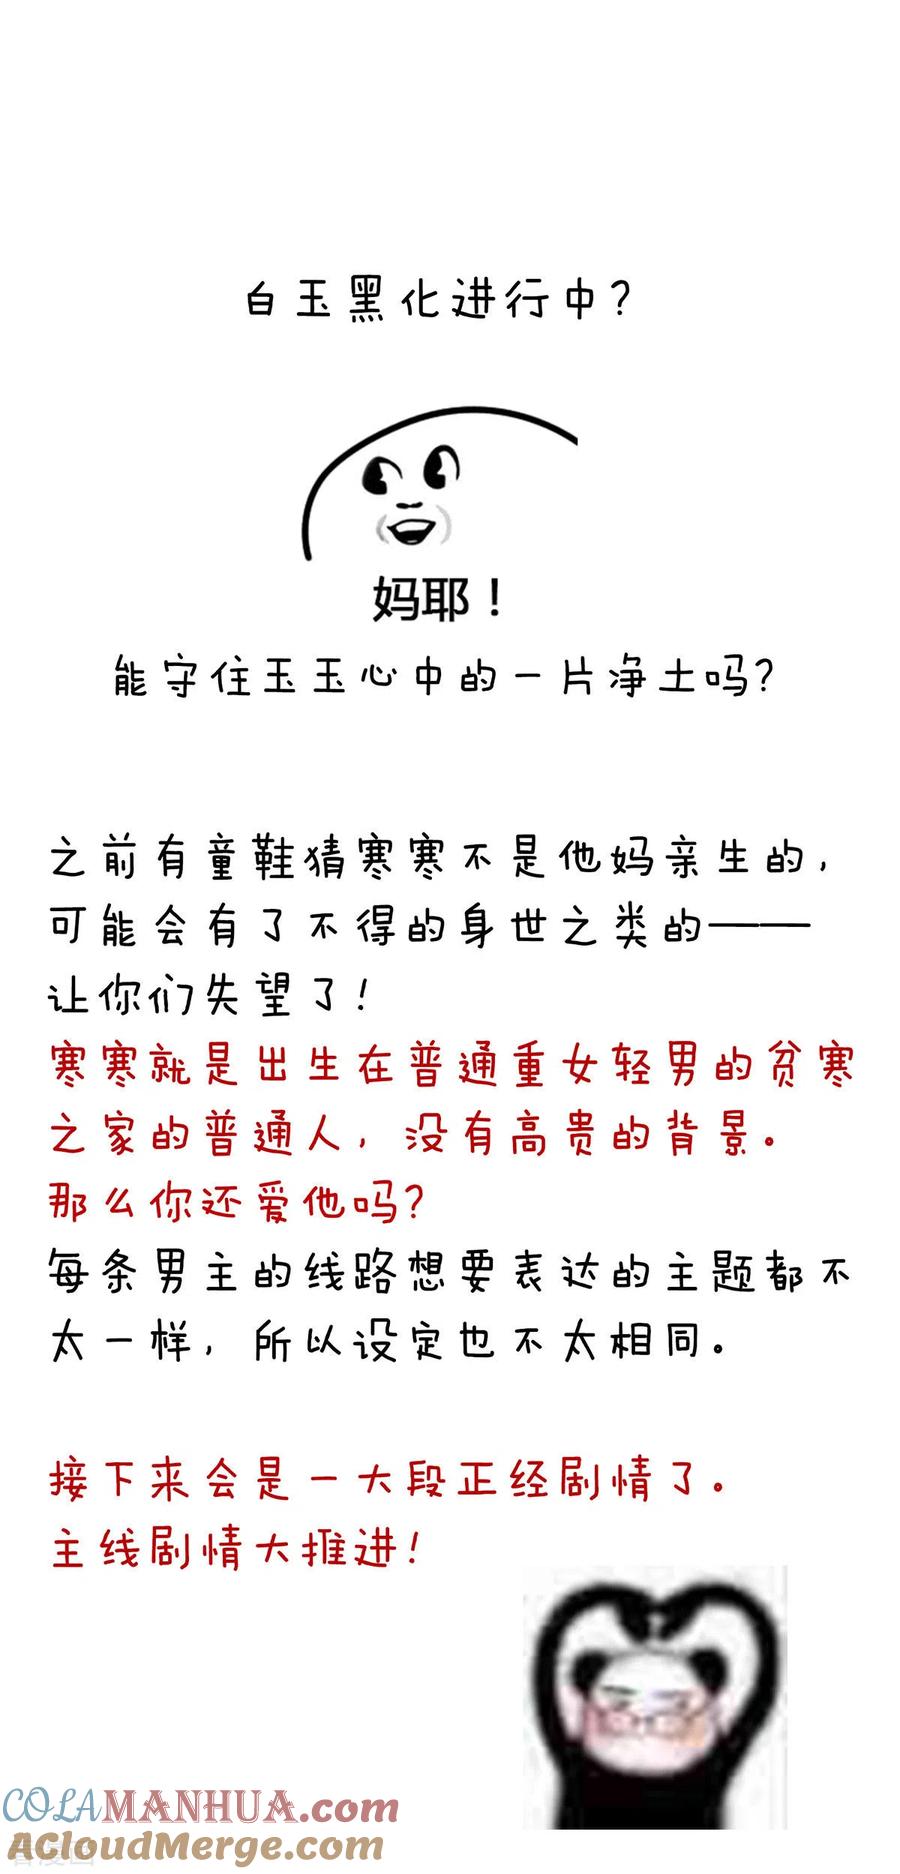 白玉黑化进行中?
妈耶！
能守住玉玉心中的一片净土吗?
之前有童鞋猜寒寒不是他妈亲生的,
可能会有了不得的身世之类的——
让你们失望了!
寒寒就是出生在普通重女轻男的贫寒
之家的普通人, 没有高贵的背景。
那么你还爱他吗?
每条男主的线路想要表达的主题都不
太一样, 所以设定也不太相同。
接下来会是一大段正经剧情了。
主线剧情大推进!
COLAMANHUA.com
ACloudMerge.com